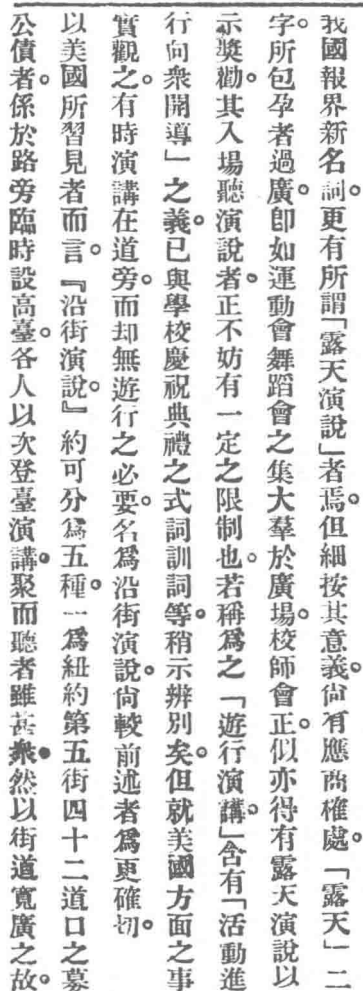 我國報界新名詞。更有所謂「露天演說」者焉。但細按其意義。尙有應商榷處。「露天」二
字。所包孕者過廣。卽如運動會舞蹈會之集大羣於廣場。校師會正。似亦得有露天演說以
示獎勸。其入場聽演說者。正不妨有一定之限制也。若稱爲之「遊行演講。」含有「活動進
行向衆開導」之義。已與學校慶祝典禮之式詞訓詞等。稍示辨別矣。但就美國方面之事
實觀之。有時演講在道旁。而却無遊行之必要。名爲沿街演說。尙較前述者爲更確切。
以美國所習見者而言。『沿街演說。』約可分爲五種。一爲紐約第五街四十二道口之募
公債者。係於路旁臨時設高臺。各人以次登臺演講。聚而聽者雖甚衆。然以街道寬廣之故。